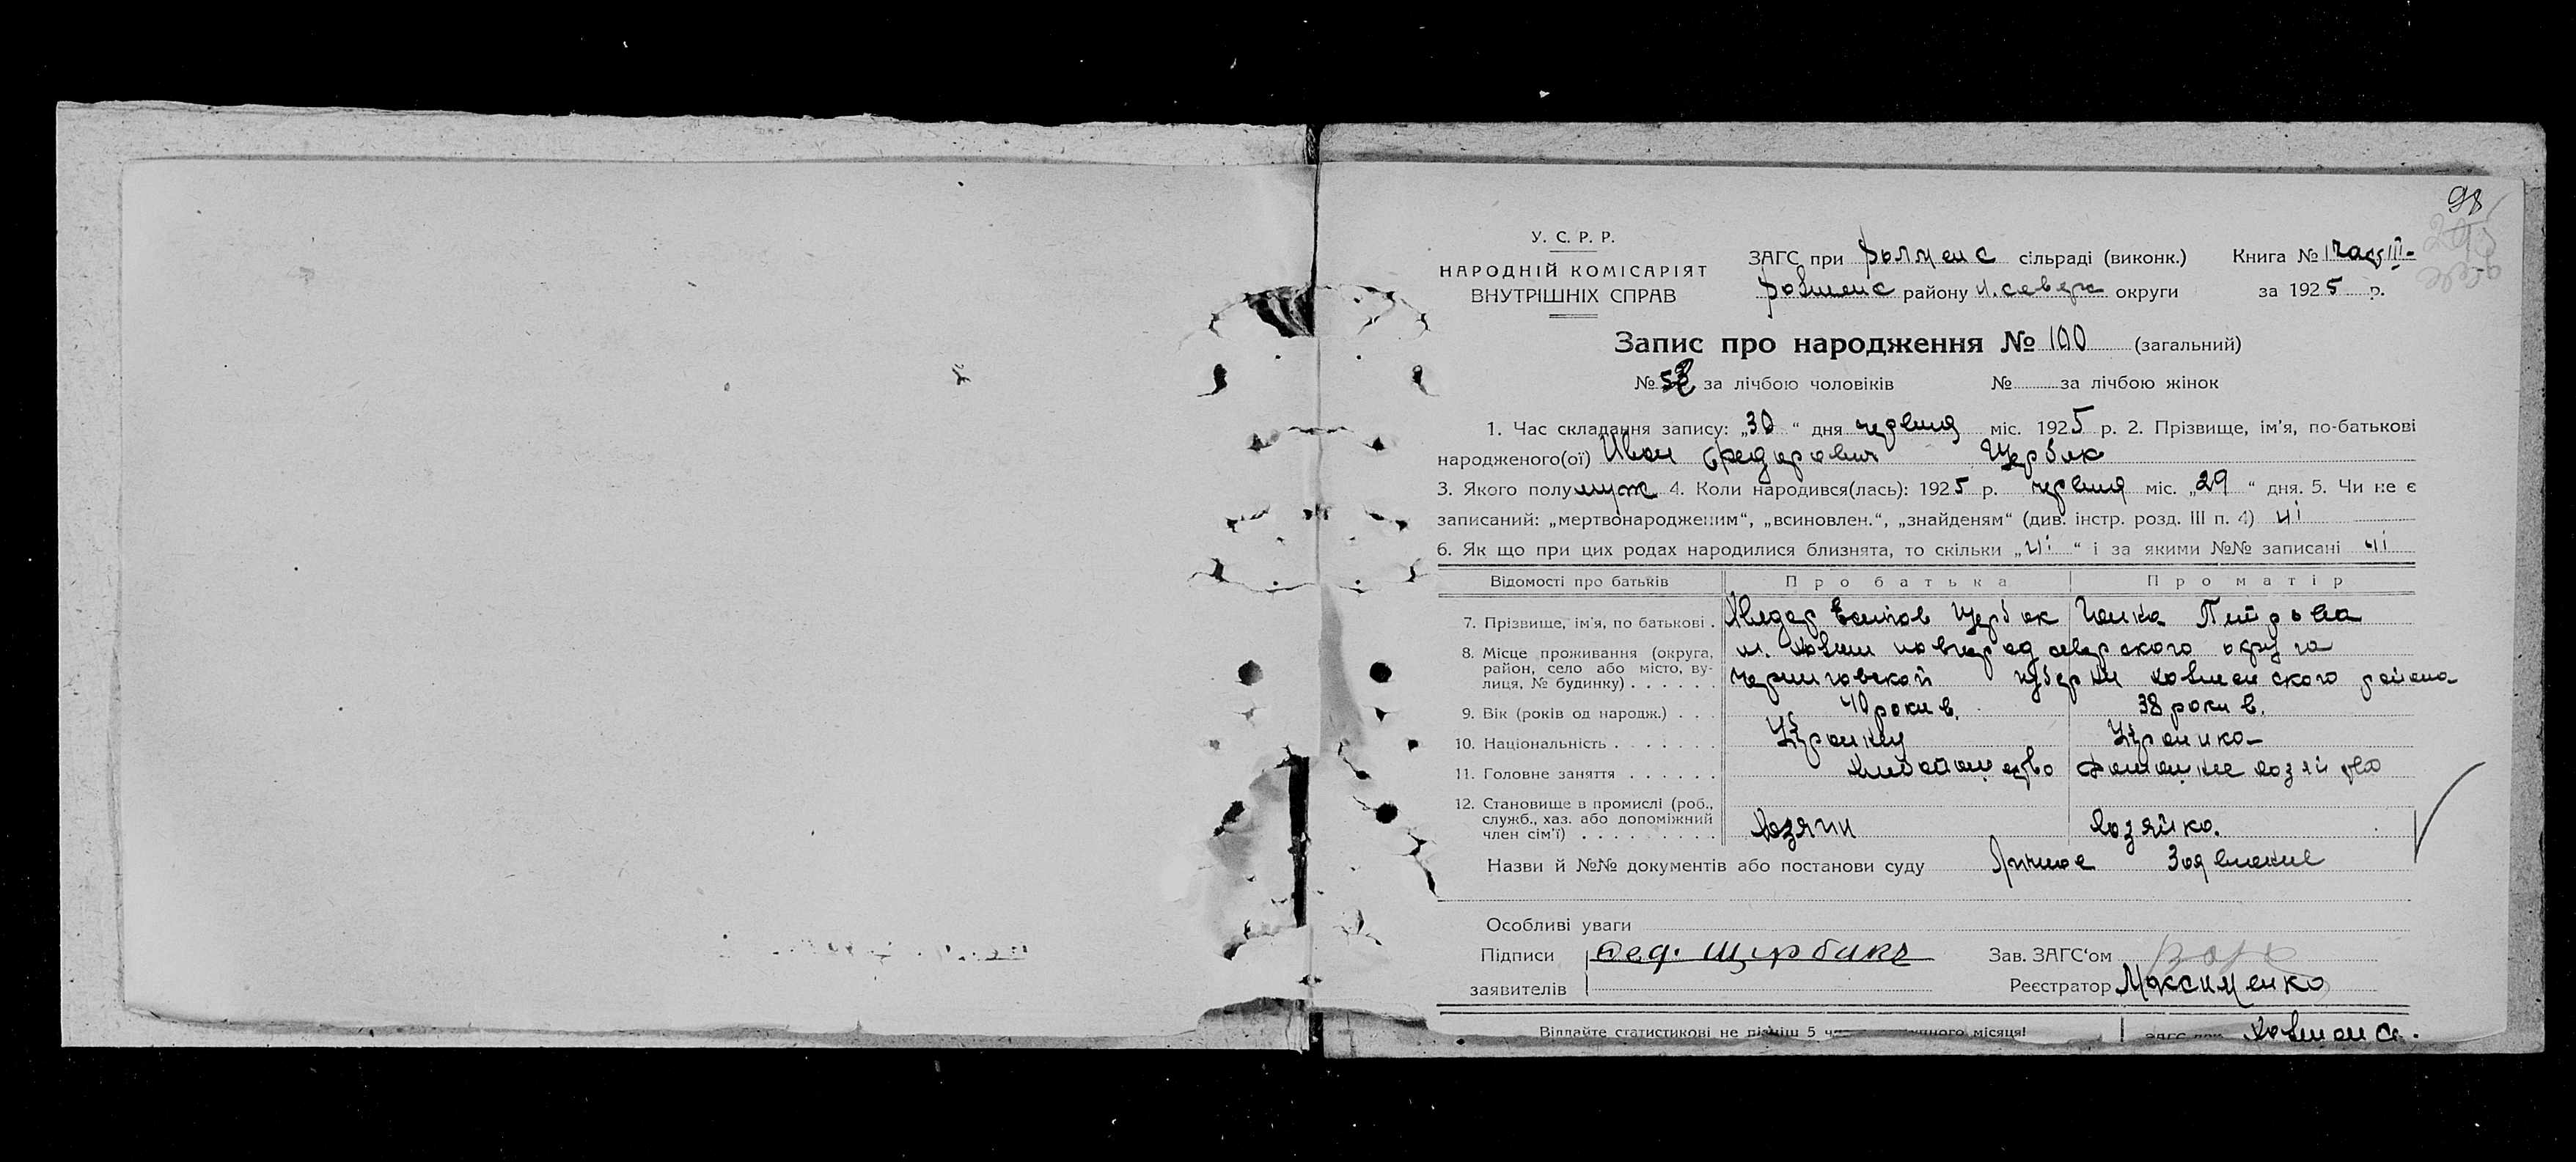 98
У. С. Р. Р.
НАРОДНІЙ КОМІСАРІЯТ
ВНУТРІШНІХ СПРАВ
ЗАГС при сільраді (виконк.) Книга № І част ІІІ-
району н.северс округи за 1925 р.
Запис про народження № 100 (загальний)
№ за лічбою чоловіків № за лічбою жінок
1. Час складання запису: „30“ дня червня міс. 1925 р. 2. Прізвище, ім'я, по-батькові
народженого(ої) Иван Федорович Щербак
3. Якого полу муж 4. Коли народився(лась): 1925 р. червня міс. „29“ дня. 5. Чи не є
записаний: „мертвонародженим“, „всиновлен.“, „знайденям“ (див. інстр. розд. III п. 4) ні
6. Як що при цих родах народилися близнята, то скільки „ні“ і за якими №№ записані ні
Відомості про батьків Про батька Про матір
7. Прізвище, ім'я, по батькові . Хведор Щербак
8. Місце проживання (округа, район, село або місто, вулиця, № будинку) . . . . . . м. новгородсеверского округа
черниговской губерни района
9. Вік (років од народж.) . . . 40 роки в. 38 роки в.
10. Національність . . . . . . .
11. Головне заняття . . . . . .
12. Становище в промислі (роб.,
служб., хаз. або допоміжний
член сім'ї) . . . . . . . . . Хозяин Хозяйка.
Назви й №№ документів або постанови суду Личное Заявление
Особливі уваги
Підписи Фед. Щирбакъ Зав. ЗАГС'ом
заявителів Реєстратор Максименко
Віддайте статистикові не пізніш 5 місяця!